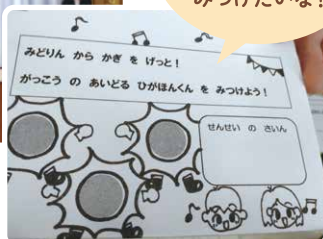 みつけたいな!
みどりん から かぎ を げっと!
がっこう の あいどる ひがほんくん を みつけよう!
せんせい の さいん